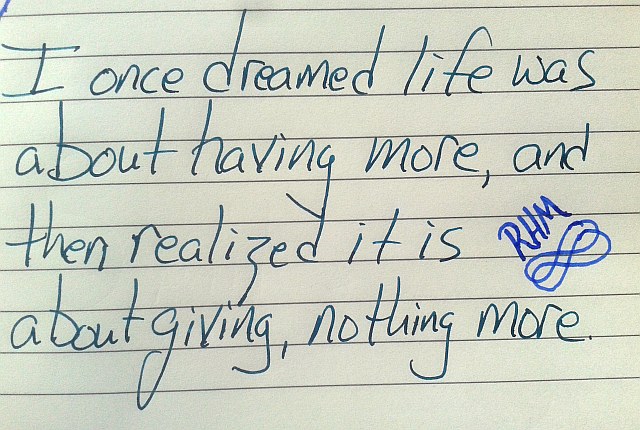 I once dreamed life was
about having more, and
then realized it is
RHM
about giving, nothing more.